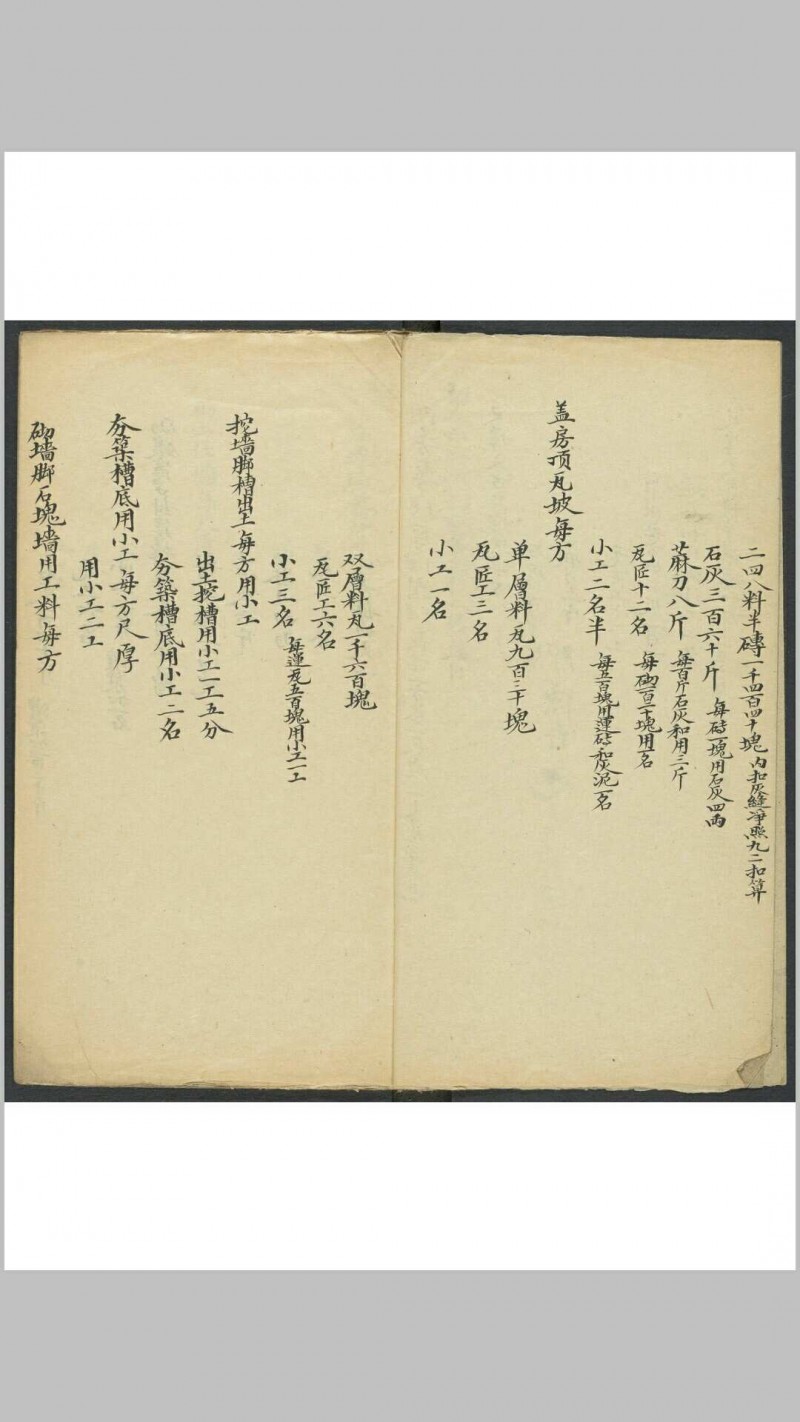 二四八料半磚一千四百四十塊 内扣灰縫净照九二扣算
石灰三百六十斤 每砖一塊用石灰四両
蔴刀八斤 每百斤石灰和用三斤
瓦匠十二名 每砌一百二十塊用一名
小工二名半 每五百塊用運砖和灰泥一名
盖房顶瓦坡每方
单層料瓦九百二十塊
瓦匠工三名
小工一名
双層料瓦一千六百塊
瓦匠工六名
小工三名 每運瓦五百塊用小工一工
挖墙脚槽出土每方用小工
出土挖槽用小工一工五分
夯築槽底用小工二名
夯築槽底用小工每方尺厚
用小工二工
砌墙脚石塊墙用工料每方